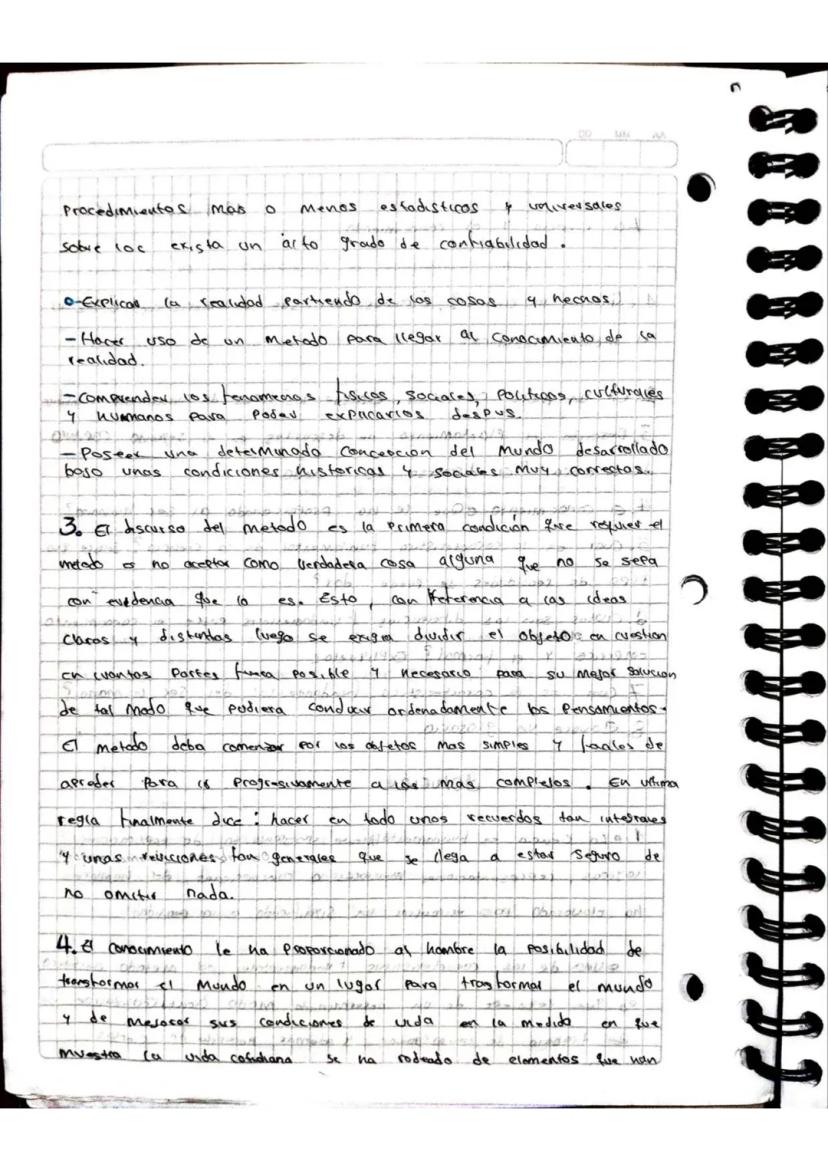 Procedimientos mas o menos estadisticos y universales
sobre loc exista un alto grado de confiabilidad.
-Explicar la realidad partiendo de las cosas y hechos.
- Hacer uso de un metodo para llegar al conocimiento de la
realidad.
- Comprender los fenomenos fisicos, sociales, politicos, culturales
y humanos para poder explicarlos despus.
- Poseer una determinada concepcion del mundo desarrollado
bajo unas condiciones historicas y sociales muy correctas.
3. El discurso del metodo es la primera condición que requier el
metodo es no aceptar como verdadera cosa alguna que no se sepa
con evidencia que lo es. Esto, con referencia a las ideas
claras y distintas luego se exigia dividir el objeto en cuestion
en cuantas partes fuera posible y necesario para su mejor solucion
de tal modo que pudiera conducir ordenadamente los pensamientos.
El metodo deba comenzar por los objetos mas simples y faciles de
apreder para ir progresivamente a los mas complejos. En ultima
regla finalmente dice: hacer en todo unos recuerdos tan integrales
y unas reuicciones tan generales que se llega a estar seguro de
no omitir nada.
4. El conocimiento le ha proporcionado al hombre la posibilidad de
transformar el mundo en un lugar para trasformar el mundo
y de mejorar sus condiciones de vida en la medida en que
muestra la vida cotidiana se ha rodeado de elementos que han